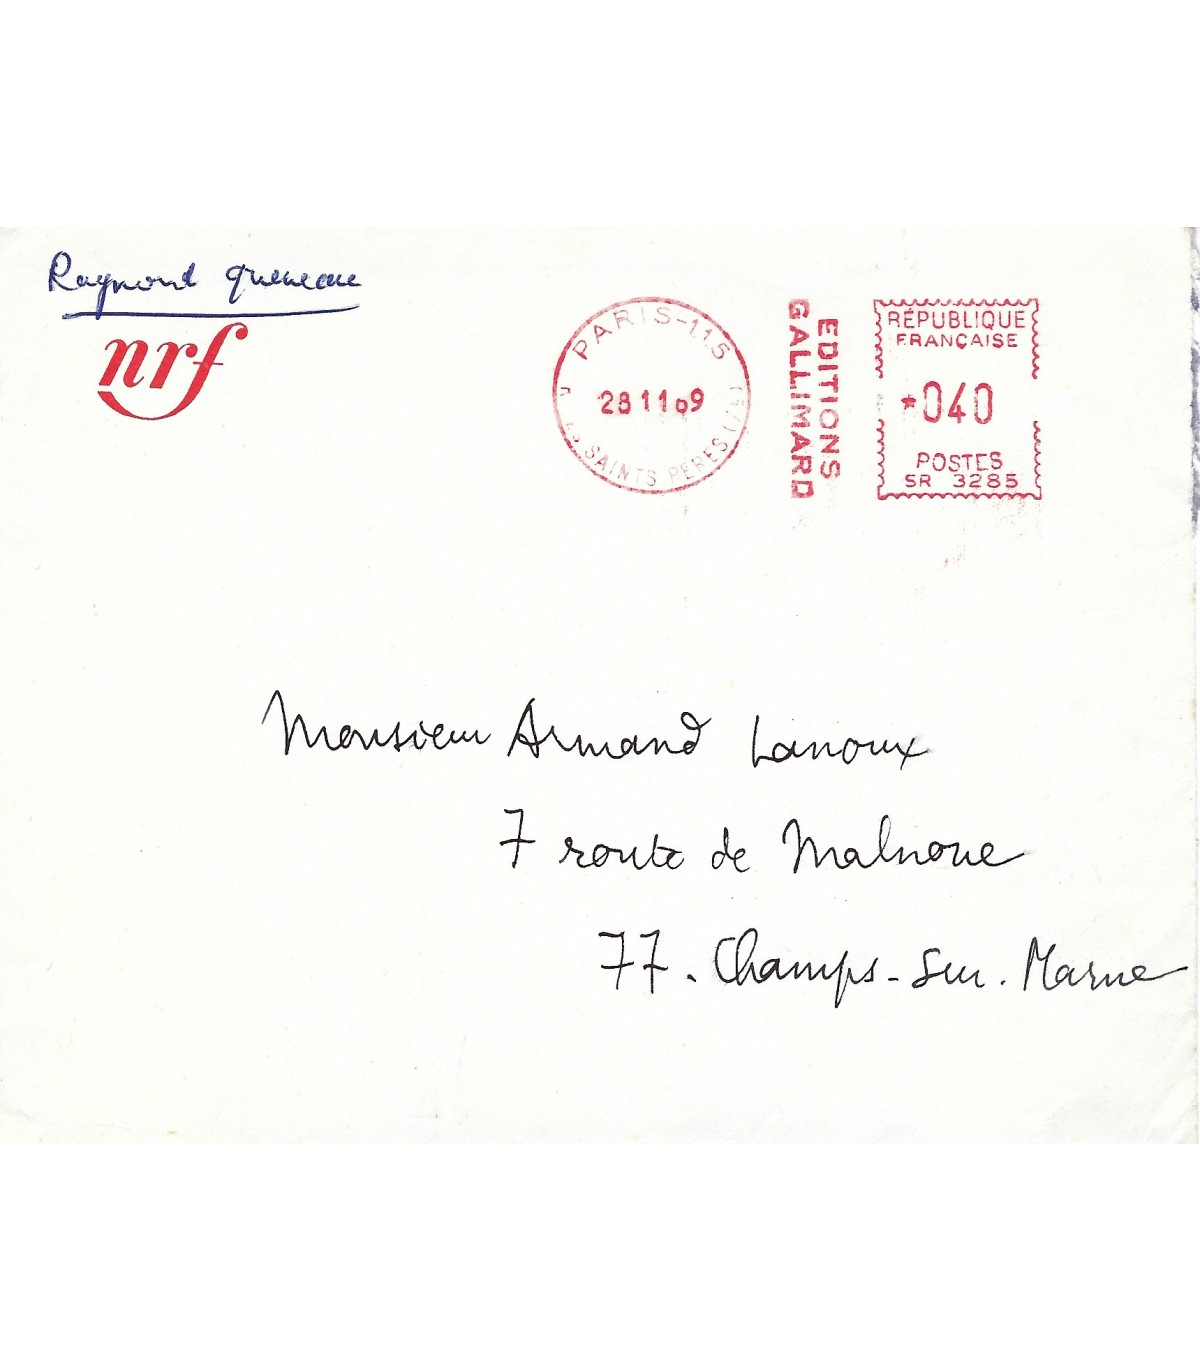 Raymond Queneau
nrf
PARIS-115
28 11 69
SAINTS PERES
EDITIONS
GALLIMARD
RÉPUBLIQUE
FRANÇAISE
*040
POSTES
SR 3285
Monsieur Armand Lanoux
7 route de Malnoue
77. Champs-sur-Marne